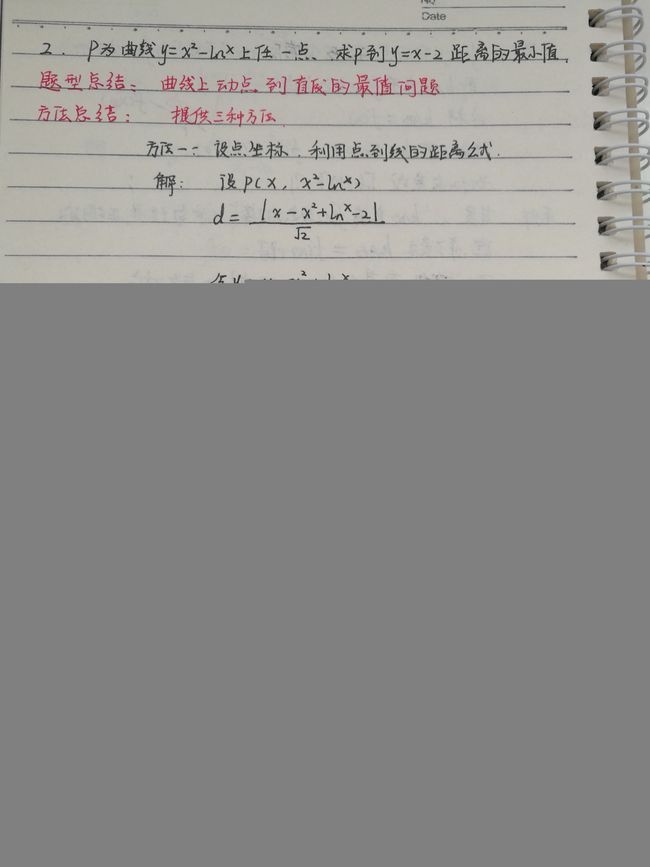 No
Date
2. P为曲线y=x²-lnˣ上任一点、求P到y=x-2距离的最小值.
题型总结: 曲线上动点到直线的最值问题
方法总结: 提供三种方法.
方法一: 设点坐标、利用点到线的距离公式.
解: 设P(x, x²-lnˣ)
d = |x-x²+lnˣ-2| / √2